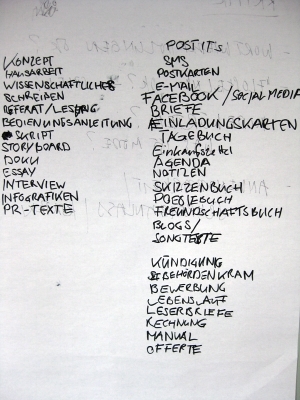 KONZEPT
HAUSARBEIT
WISSENSCHAFTLICHES
SCHREIBEN
REFERAT/LESUNG
BEDIENUNGSANLEITUNG
SKRIPT
STORYBOARD
DOKU
ESSAY
INTERVIEW
INFOGRAFIKEN
PR-TEXTE
POST ITs
SMS
POSTKARTEN
E-MAIL
FACEBOOK / SOCIAL MEDIA
BRIEFE
EINLADUNGSKARTEN
TAGEBUCH
Einkaufszettel
AGENDA
NOTIZEN
SKIZZENBUCH
POESIEBUCH
FREUNDSCHAFTSBUCH
BLOGS/
SONGTEXTE
KÜNDIGUNG
BEHÖRDENKRAM
BEWERBUNG
LEBENSLAUF
LESERBRIEFE
RECHNUNG
MANUAL
OFFERTE